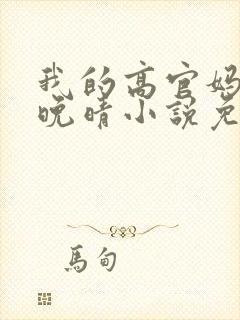 我的高官妈
晚晴小說免
馬甸